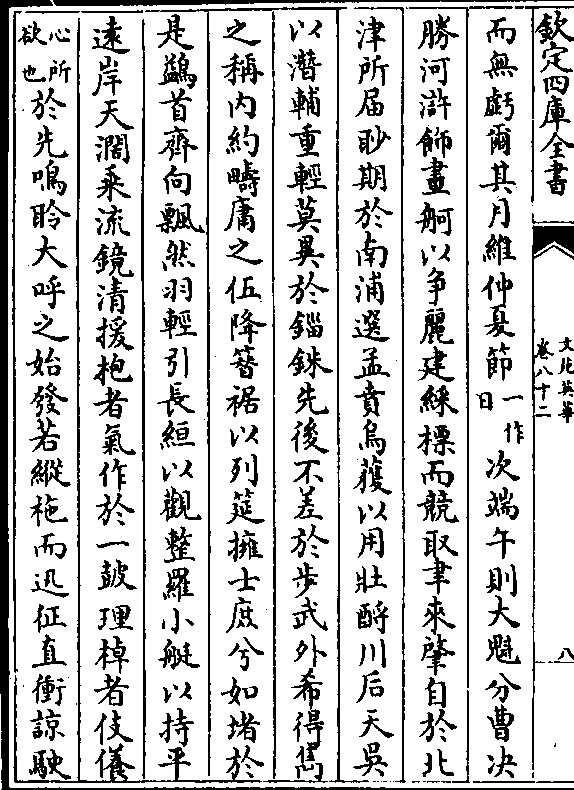 欽定四庫全書
文苑英華
卷八十二
八
而無虧爾其月維仲夏節一作日次端午則大魁分曹決
勝河滸飾畫舸以争麗建綵標而競取聿來肇自於北
津所届眇期於南浦選孟賁烏獲以用壯酹川后天吳
以潛輔重輕莫異於錙銖先後不差於步武外希得雋
之稱内約疇庸之伍降簪裾以列筵擁士庶兮如堵於
是鷁首齊向飄然羽輕引長絙以觀整羅小艇以持平
遠岸天濶乗流鏡清援枹者氣作於一皷理棹者伎儀
心所欲也於先鳴聆大呼之始發若縱柂而迅征直衝諒駛